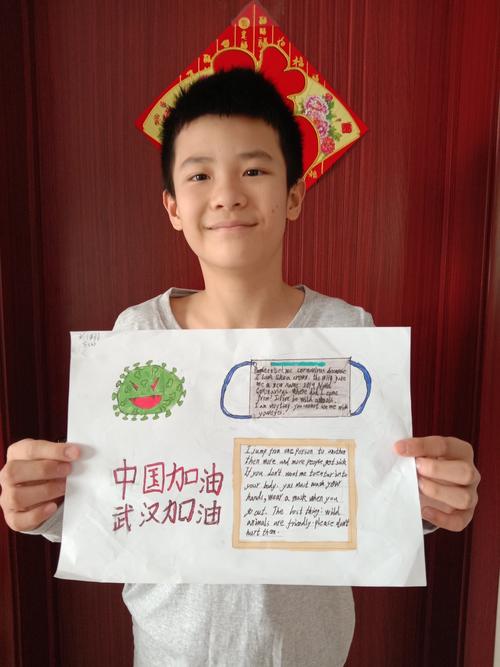 People call me coronavirus because
I look like a crown. The WHO gave
me a new name: 2019 Novel
Coronavirus. Where did I come
from? I live in wild animals.
I am very tiny. you cannot see me with
your eyes.
I jump from one person to another
then more and more people get sick
If you don't want me to enter into
your body. you must wash your
hands, wear a mask when you
go out. The last thing: wild
animals are friendly. Please don't
hurt them.
中国加油
武汉加油